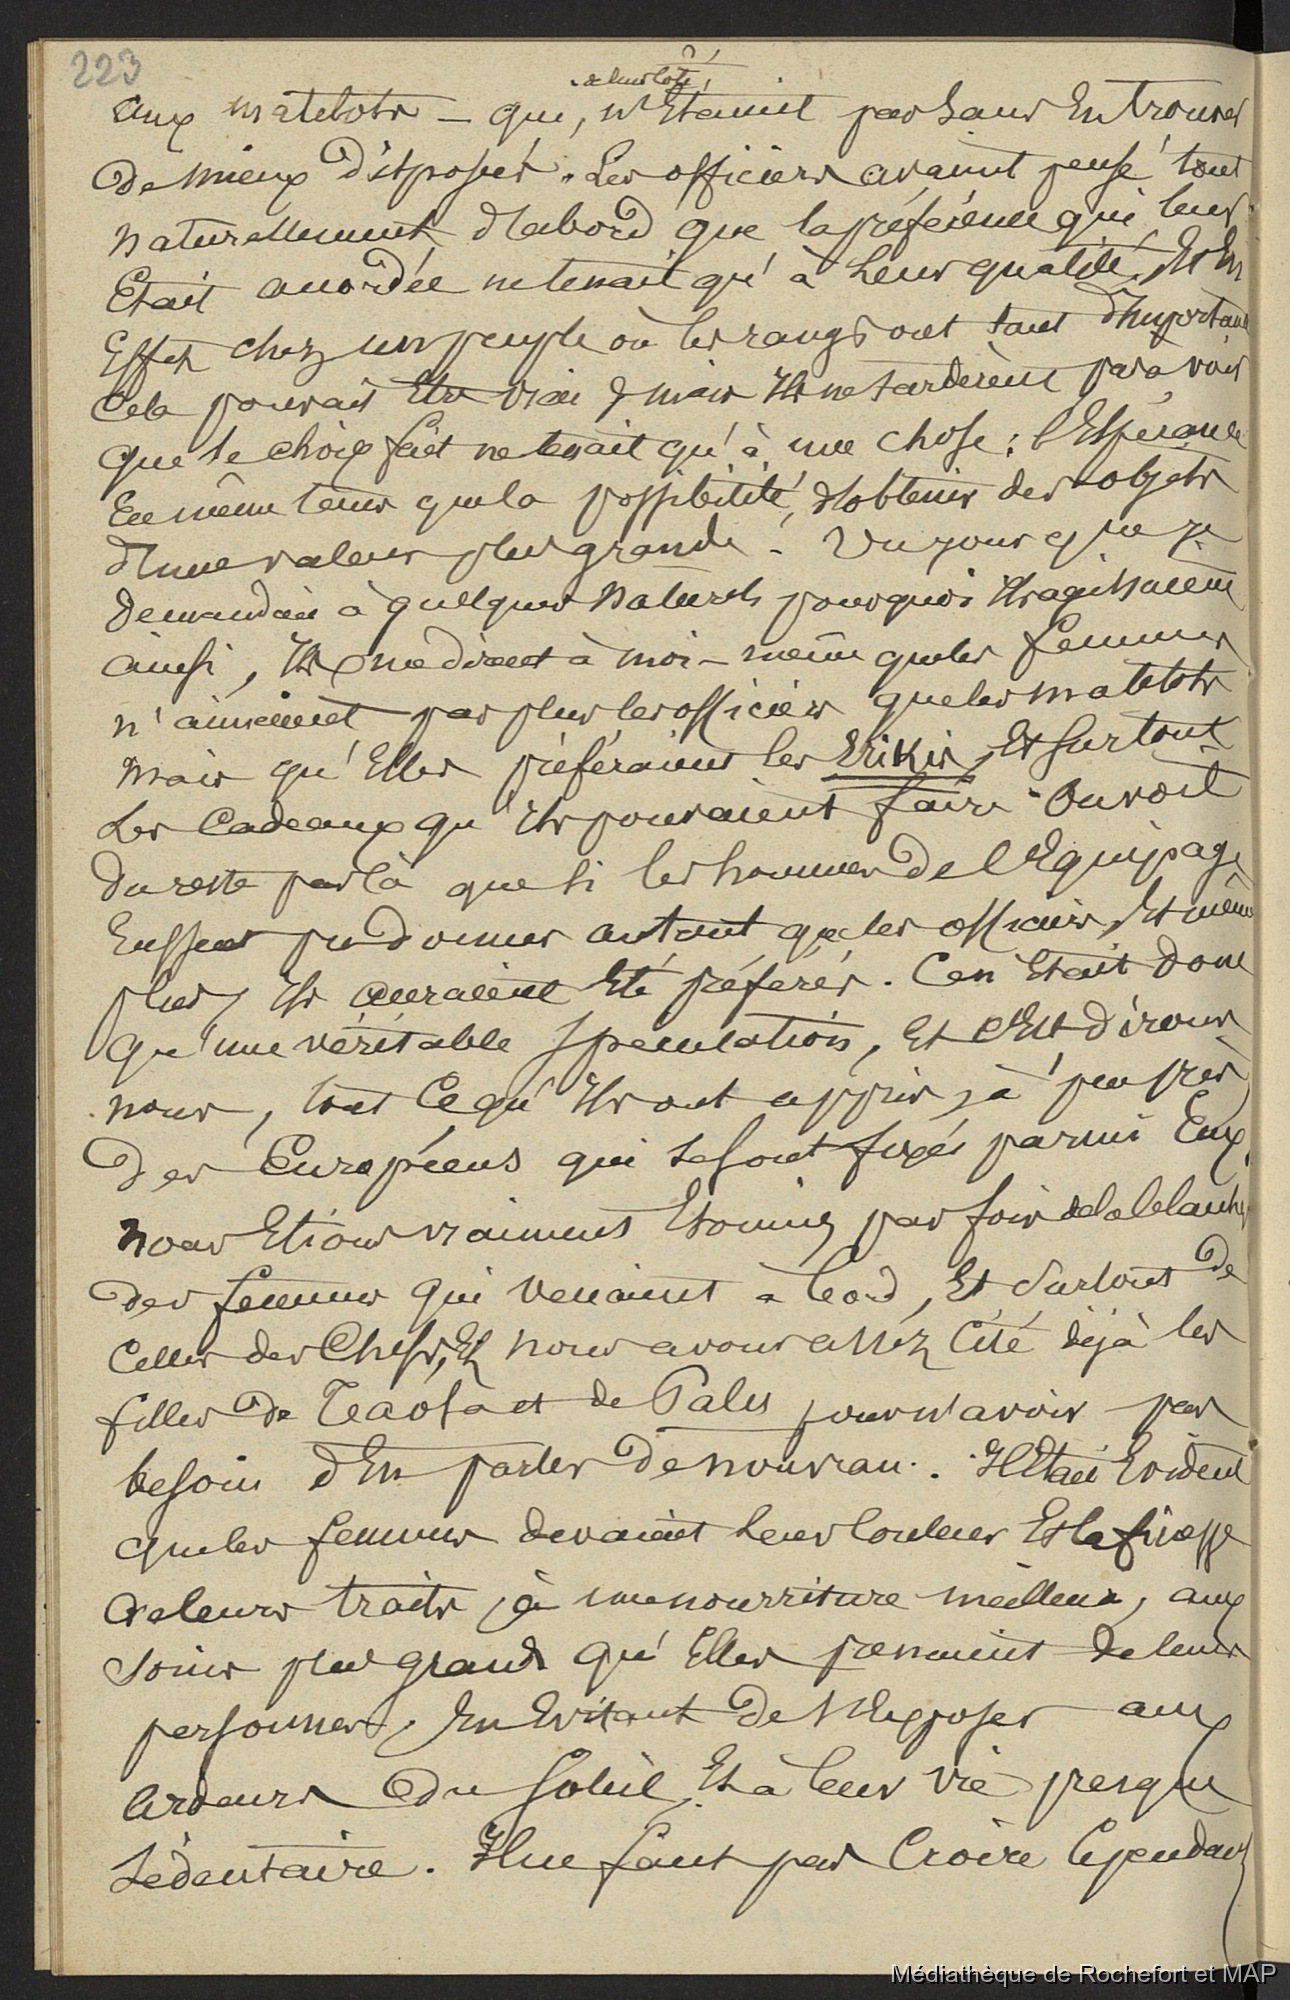 223
de leur côté,
aux matelots – qui, n'Etaient pas sans En trouver
de mieux disposés. Les officiers avaient pensé tout
naturellement d'abord que la préférence qui leur
Etait accordée ne tenait qu'à leur qualité, Et En
Effet chez un peuple où les rangs ont tant d'importance
Cela pouvait Etre vrai; mais Ils ne tardèrent pas à voir
que le choix fait ne tenait qu'à une chose: l'Espérance
En même tems que la possibilité, d'obtenir des objets
d'une valeur plus grande. Un jour que je
demandais à quelques Naturels pourquoi Ils agissaient
ainsi, Ils me dirent à moi-même que les femmes
n'aimaient pas plus les officiers que les matelots
mais qu'Elles préféraient les Erikis, Et surtout
Les Cadeaux qu'Ils pouvaient faire. On voit
du reste par là que si les hommes de l'Equipage
Eussent pu donner autant que les officiers, Et même
plus, Ils auraient Eté préférés. Ce n'Etait donc
qu'une véritable spéculation, Et c'Est disons
nous, tout ce qu'Ils ont appris, à peu près
des Européens qui se sont fixés parmi Eux.
Nous Etions vraiment Etonnés parfois de la blancheur
des femmes qui venaient à bord, Et surtout de
Celles des Chefs, Et nous avons assez Cité déjà les
filles de Teaofa et de Palu pour n'avoir pas
besoin d'En parler de nouveau. Il Etait Evident
que les femmes devaient leur couleur Et la finesse
de leurs traits, à une nourriture meilleure, aux
soins plus grands qu'Elles prenaient de leurs
personnes, En Evitant de s'Exposer aux
ardeurs du soleil, Et à leur vie presque
sédentaire. Il ne faut pas Croire Cependant
Médiathèque de Rochefort et MAP